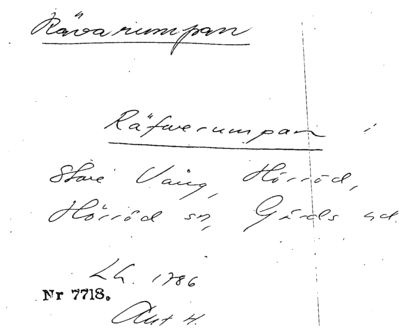 Rävarumpan
Räfwerumpan i
Store Vång, Hörröd,
Hörröd sn, Gärds hd.
LA. 1786
Nr 7718.
Akt 4.